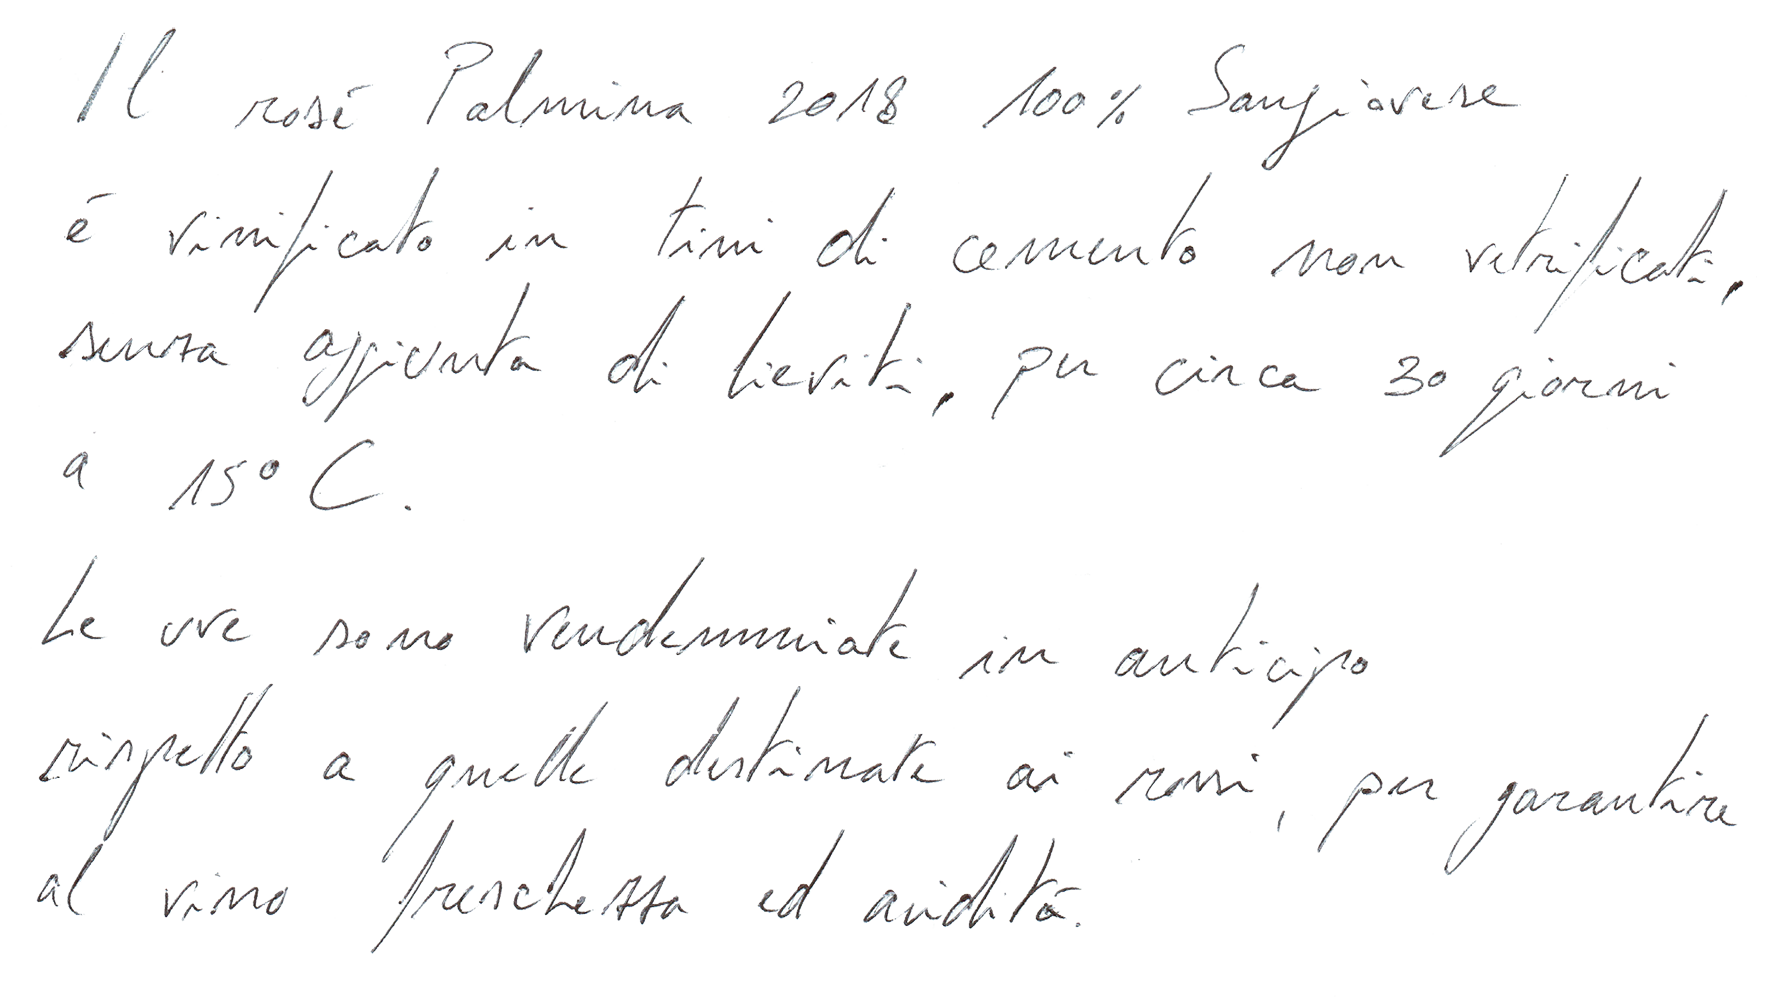 Il rosé Palmina 2018 100% Sangiovese
é vinificato in tini di cemento non vetrificati,
senza aggiunta di lieviti, per circa 30 giorni
a 15° C.
Le uve sono vendemmiate in anticipo
rispetto a quelle destinate ai rossi, per garantire
al vino freschezza ed acidità.